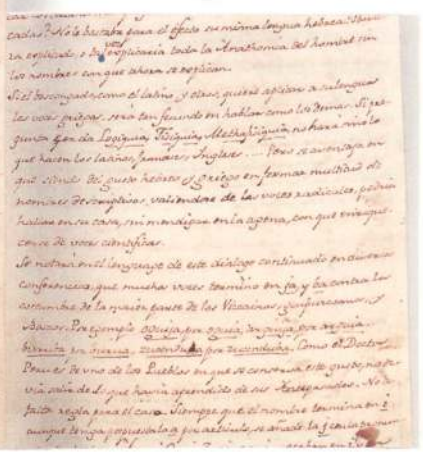 cadas? No le bastaba para el efecto su misma lengua hebrea?
ra explicado, o se explicaria toda la Anathomia del hombre sin
los nombres con que ahora se explican.
Si el Bascongado, como el latino, y otros, quiere aplicar a su lengua
las voces griegas, sera tan fecundo en hablar como los demas. Si pre-
gunta Logiquia, Fisiquia, Methaphisiquia, no hara sino lo
que hacen los latinos, franceses, Ingleses .... Pero se aventaja en
que siendo del gusto hebreo y Griego en formar multitud de
nombres descriptivos, valiendose de las voces radicales, podra
hallar en su casa, sin mendigar en la agena, con que enrique-
cerse de voces cientificas.
Se notara en el lenguage de este dialogo continuado en diversas
conferencias, que muchas voces termino en ja, y ba contra la
costumbre de la maior parte de los Vizcainos, Guipuzcoanos, y
Por exemplo oguija, por oguia, arguija, por arguia,
por por Como el Doctor
es de uno de los Pueblos en que se conserva este gusto, no de-
via salir de lo que havia aprendido de sus Antepasados. No le
falta regla para el caso. Siempre que el nombre termina en i
aunque tenga pospuesta la a por articulo, se añade la j